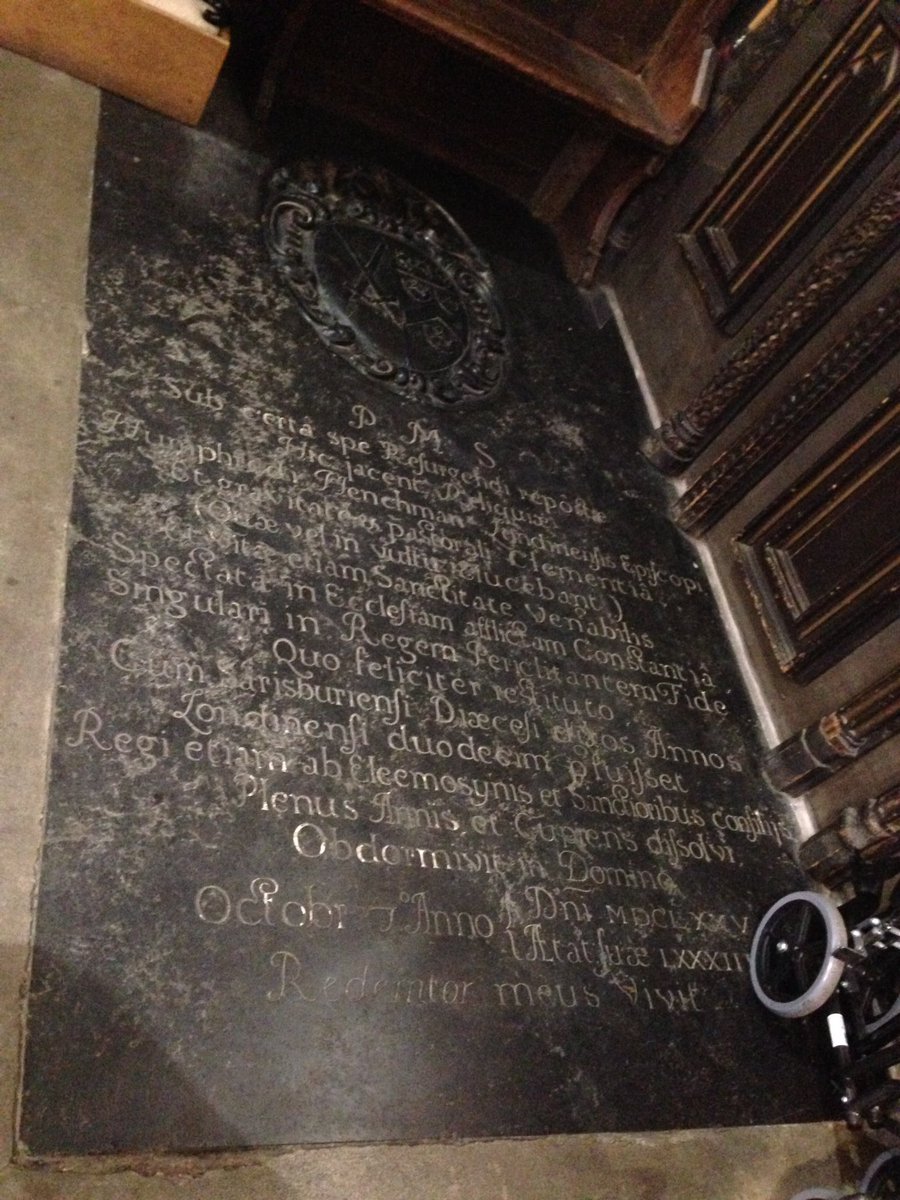 P M S
Sub certâ spe Resurgendi repostæ
Hic jacent Reliquiæ
Humphredi Henchman Londinensis Episcopi
Et gravitate et pastorali Clementiâ
(Quæ vel in vultu elucebant)
Et vitæ etiam Sanctitate venerabilis
Spectatâ in Ecclesiam afflictam Constantiâ
Singulari in Regem Periclitantem Fide
Quo feliciter restituto
Cum Sarisburiensi Diæcesi duos Annos
Londinensi duodecim præfuisset
Regi etiam ab Eleemosynis et Sanctioribus consilijs
Plenus Annis et Cupiens dissolvi
Obdormivit in Domino
Octobr 7º Anno Dñi MDCLXXV
Ætat Suæ LXXXIII
Redemtor meus Vivit